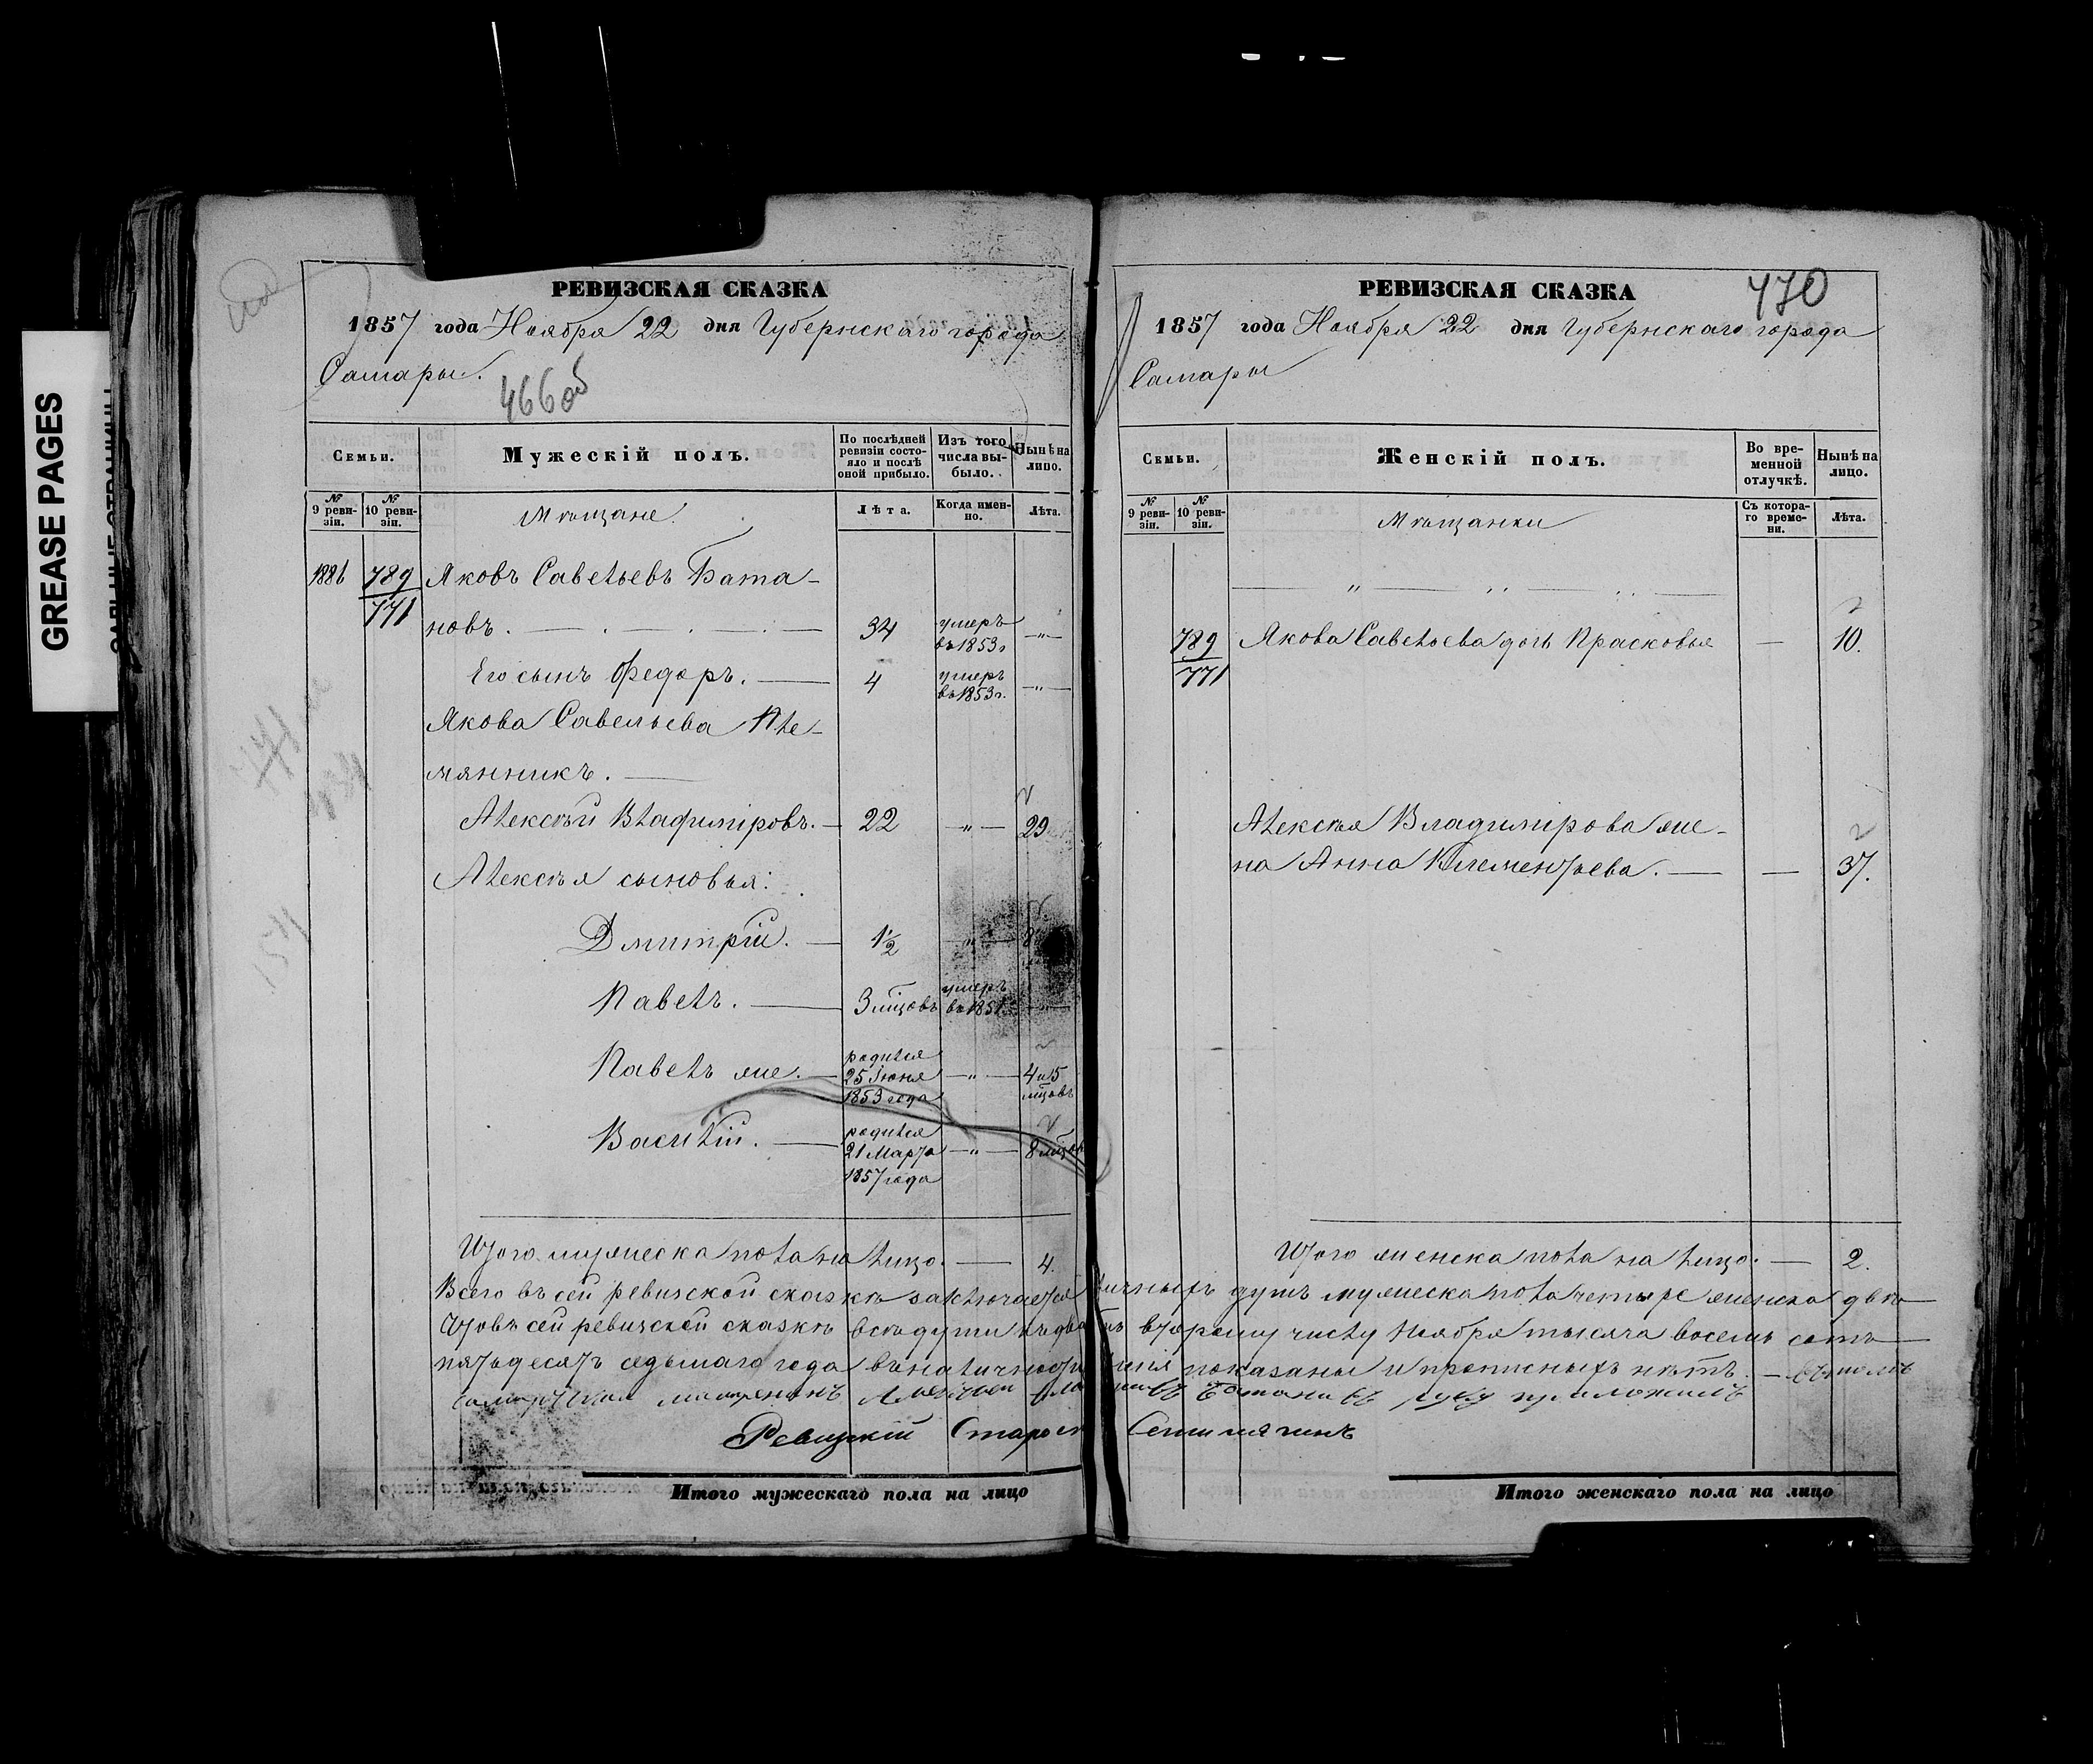 GREASE PAGES
РЕВИЗСКАЯ СКАЗКА
1857 года Ноября 22 дня Губернскаго города
Самары.
466об
Семьи.
Мужескій полъ.
По послѣдней ревизіи состояло и послѣ оной прибыло.
Изъ того числа выбыло.
Нынѣ на лицо.
№ 9 ревизіи.
№ 10 ревизіи.
Мѣщане.
Лѣта.
Когда именно.
Лѣта.
1881 789/771 Яковъ Савельевъ Бата-
новъ. 34 умеръ въ 1853г. —"—
Его сынъ Федоръ. 4 умеръ въ 1853г. —"—
Якова Савельева Пле-
мянникъ.
Алексѣй Владиміровъ. 22 —"— 29
Алексѣя сыновья:
Дмитрій. 1½ —"— 8
Павелъ. 3 мѣцовъ умеръ въ 1851
Павелъ же. родился 25 Іюня 1853 года —"— 4 и 5 мѣцовъ
Василій. родился 21 Марта 1857 года —"— 8 мѣцовъ
Итого мужеска пола на лицо. 4.
РЕВИЗСКАЯ СКАЗКА
470
1857 года Ноября 22 дня Губернскаго города
Самары
Семьи.
Женскій полъ.
Во временной отлучкѣ.
Нынѣ на лицо.
№ 9 ревизіи.
№ 10 ревизіи.
Мѣщанки
Съ котораго времени.
Лѣта.
789/771 Якова Савельева дочь Прасковья — 10.
Алексѣя Владимірова же-
на Анна Клементьева. — 37.
Итого женска пола на лицо. — 2.
Всего въ сей ревизской сказкѣ заключается личныхъ душъ мужеска пола четыре женска двѣ
въ сей ревизской сказкѣ всѣ души къ двадцать второму числу Ноября тысяча восемь сотъ
пятьдесятъ седьмаго года въ наличности показаны и прописныхъ нѣтъ.
мещенинъ Алексѣй Батановъ руку приложилъ
Ревизскій Староста
Итого мужескаго пола на лицо
Итого женскаго пола на лицо